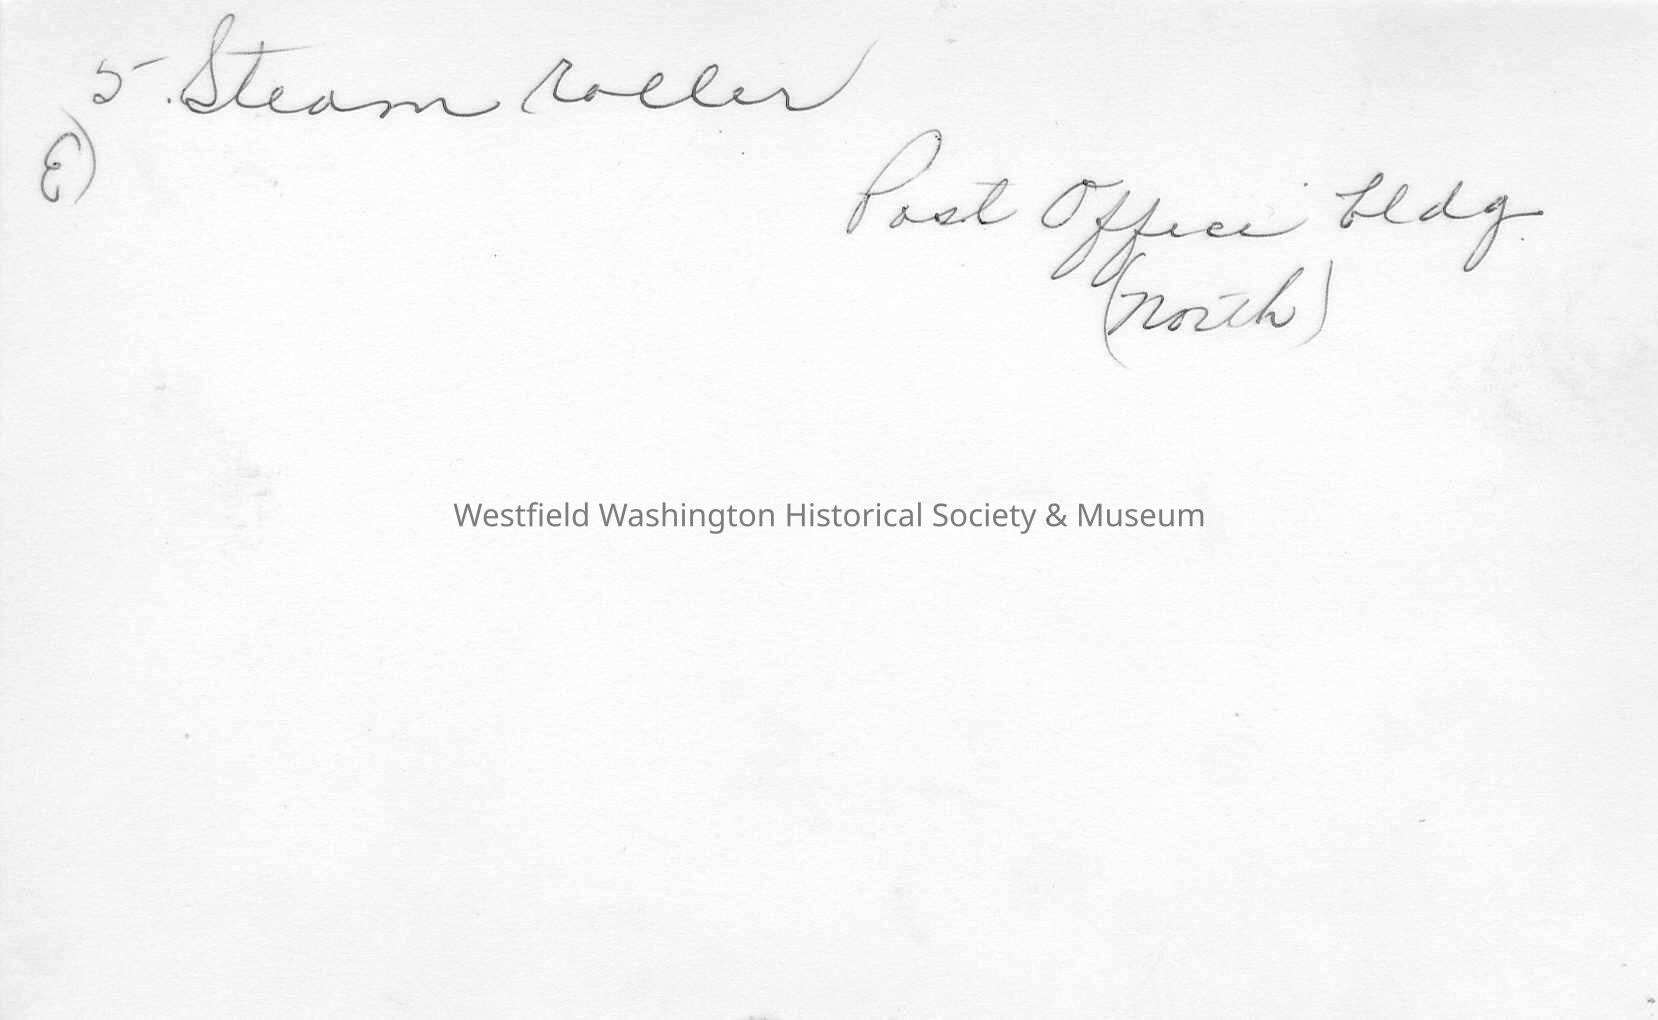 5. Steam roller
E)
Post Office bldg.
(North)
Westfield Washington Historical Society & Museum